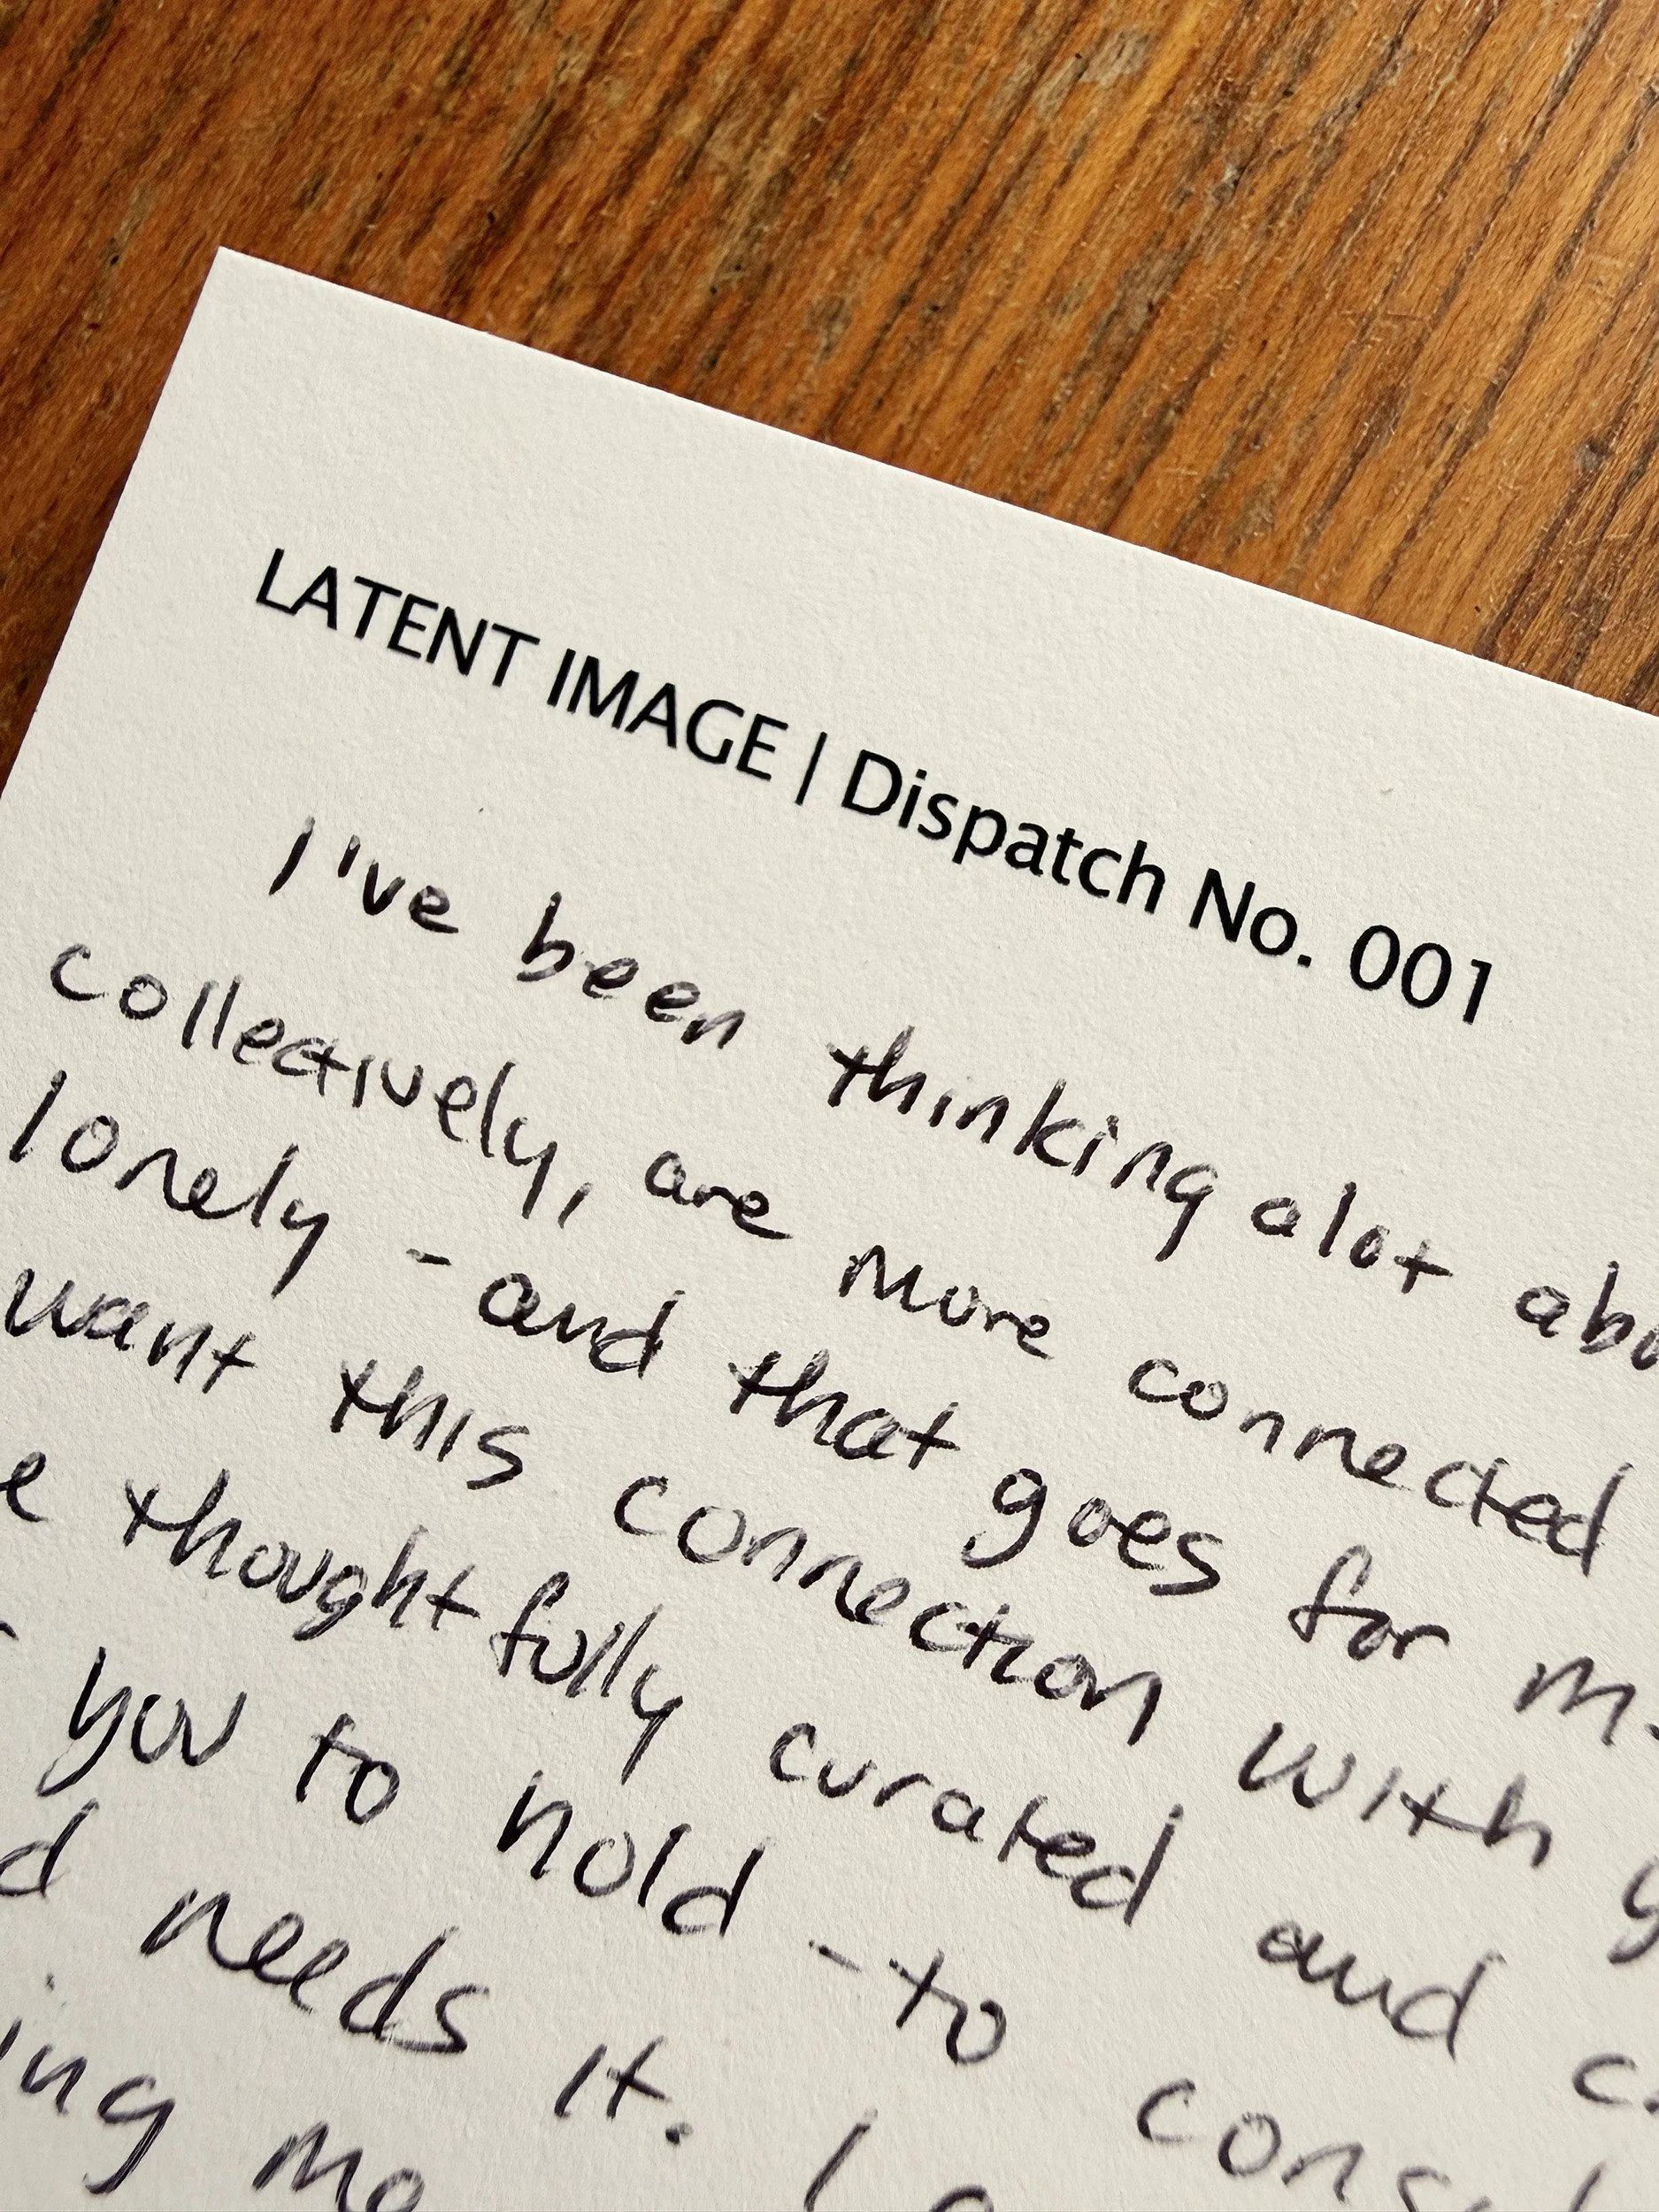 LATENT IMAGE | Dispatch No. 001
I've been thinking alot
collectively, are more connected
lonely - and that goes for
want this connection with
thoughtfully curated and
you to hold - to
needs it. I